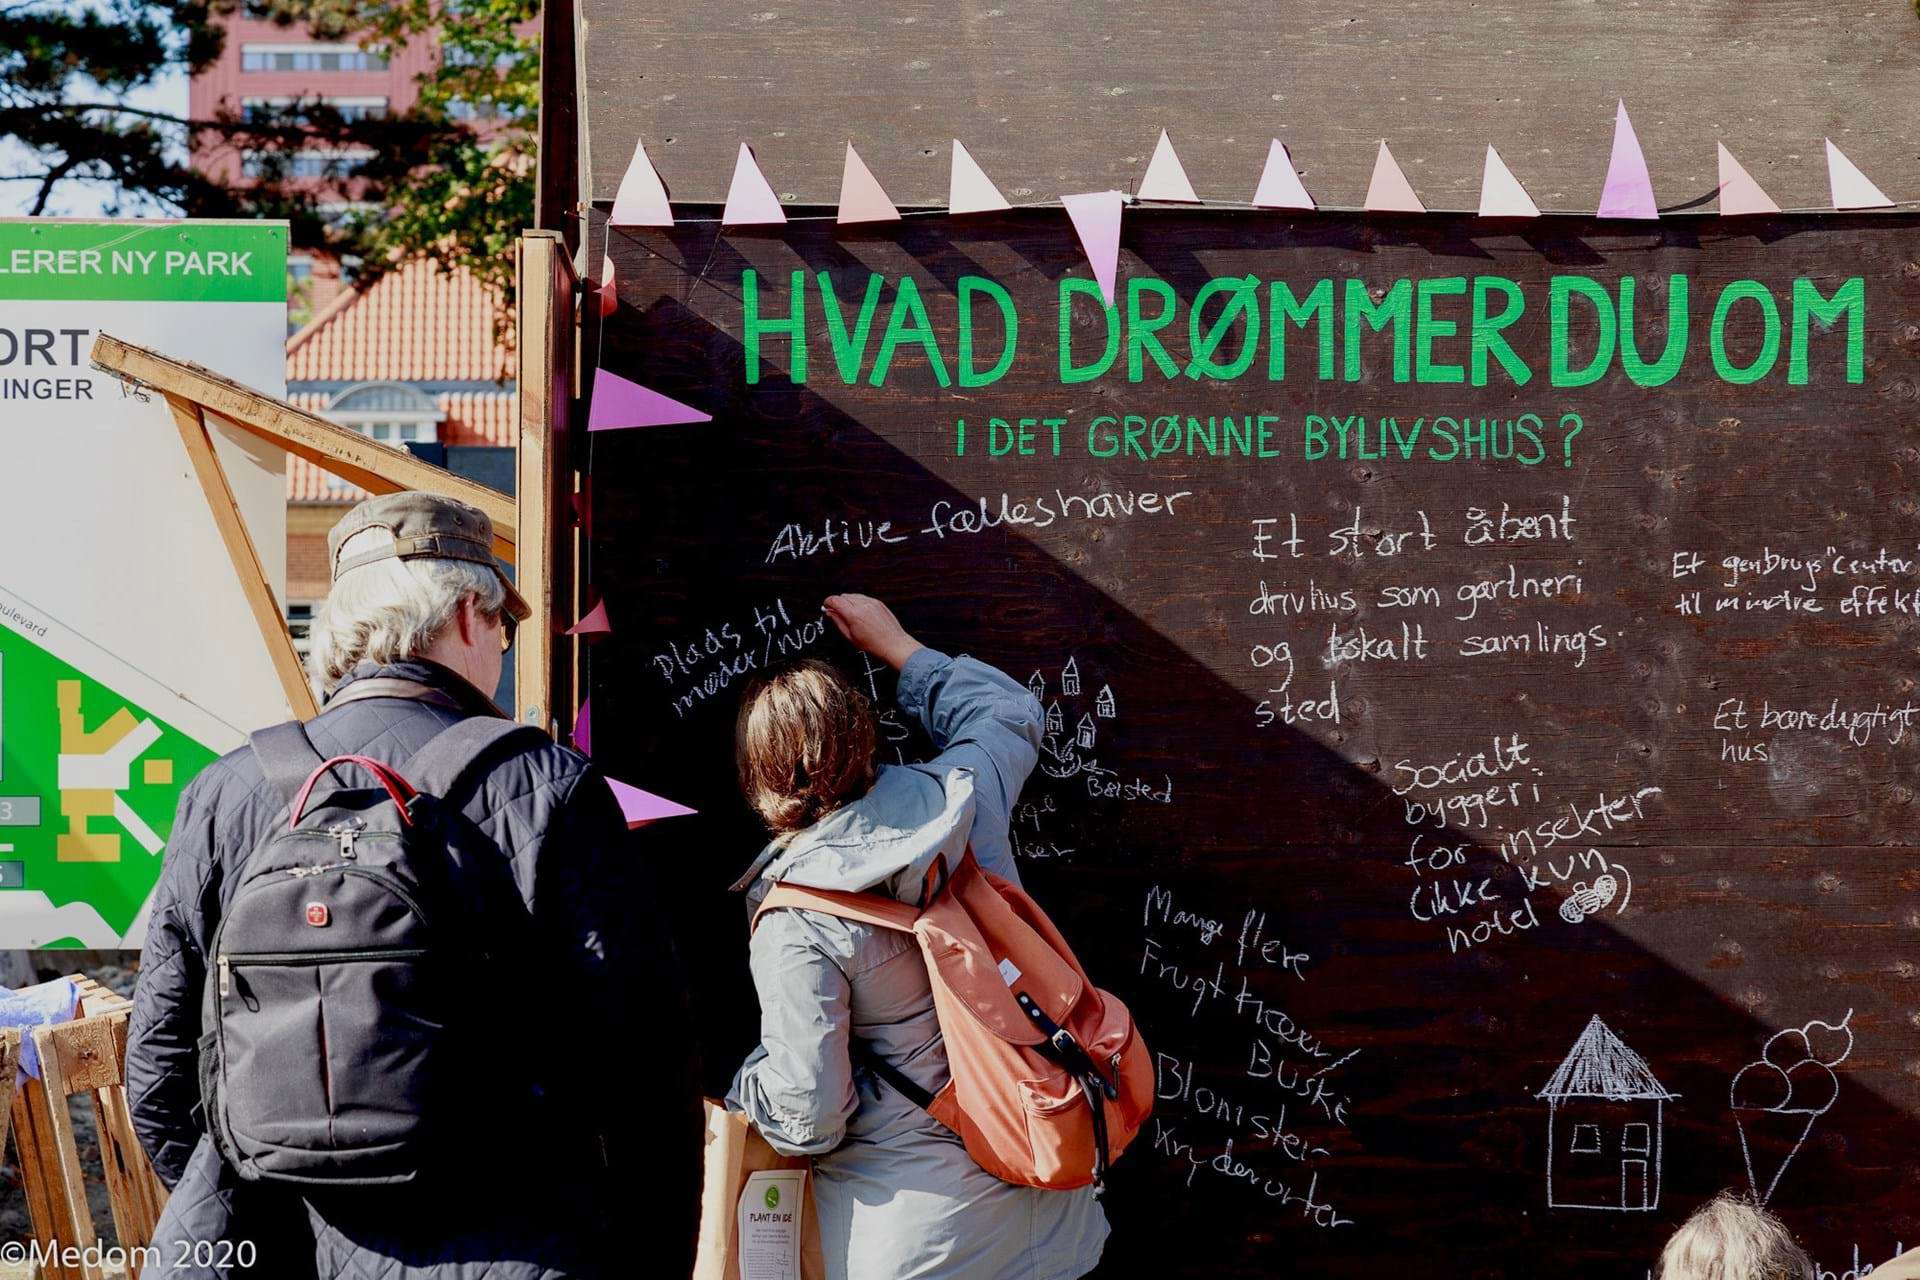 LERER NY PARK
ORT
INGER
oulevard
3
HVAD DRØMMER DU OM
I DET GRØNNE BYLIVSHUS?
Aktive fælleshaver
Plads til
møder/wor
Et stort åbent
drivhus som gartneri
og lokalt samlings-
sted
Et genbrugs"center"
til mindre effekt
Et bæredygtigt
hus
Bålsted
Socialt
byggeri
for insekter
(ikke kun
hotel )
Mange flere
Frugttræer/
Buske
Blomster-
Krydderurter
PLANT EN IDÉ
©Medom 2020